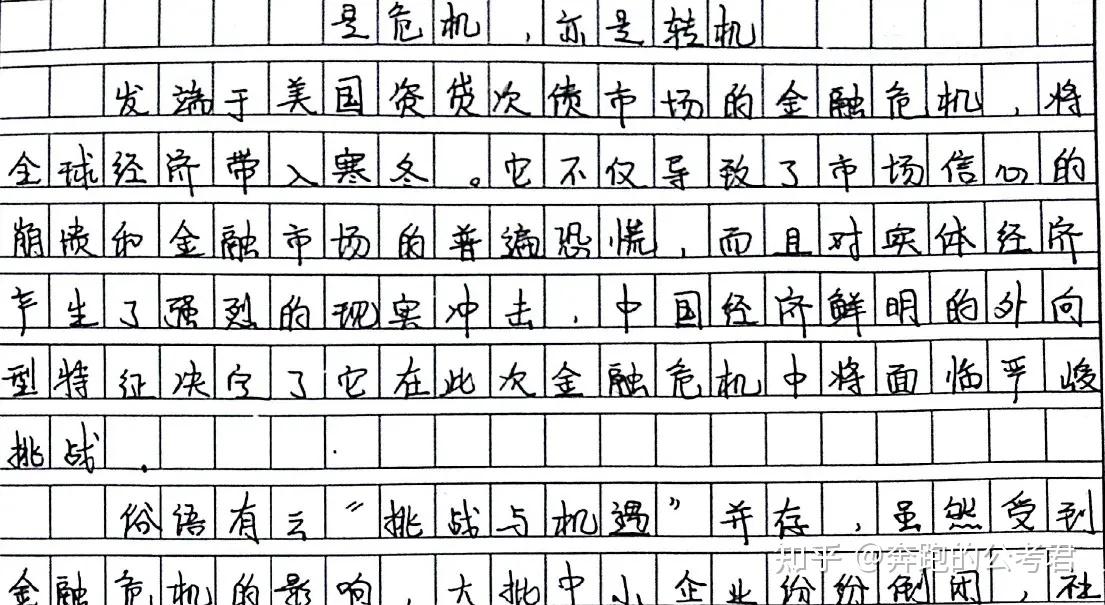 是危机,亦是转机
发端于美国资贷次债市场的金融危机,将
全球经济带入寒冬。它不仅导致了市场信心的
崩溃和金融市场的普遍恐慌,而且对实体经济
产生了强烈的现实冲击.中国经济鲜明的外向
型特征决定了它在此次金融危机中将面临严峻
挑战.
俗语有云“挑战与机遇”并存,虽然受到
金融危机的影响,大批中小企业纷纷倒闭,社
知乎 @奔跑的公考君